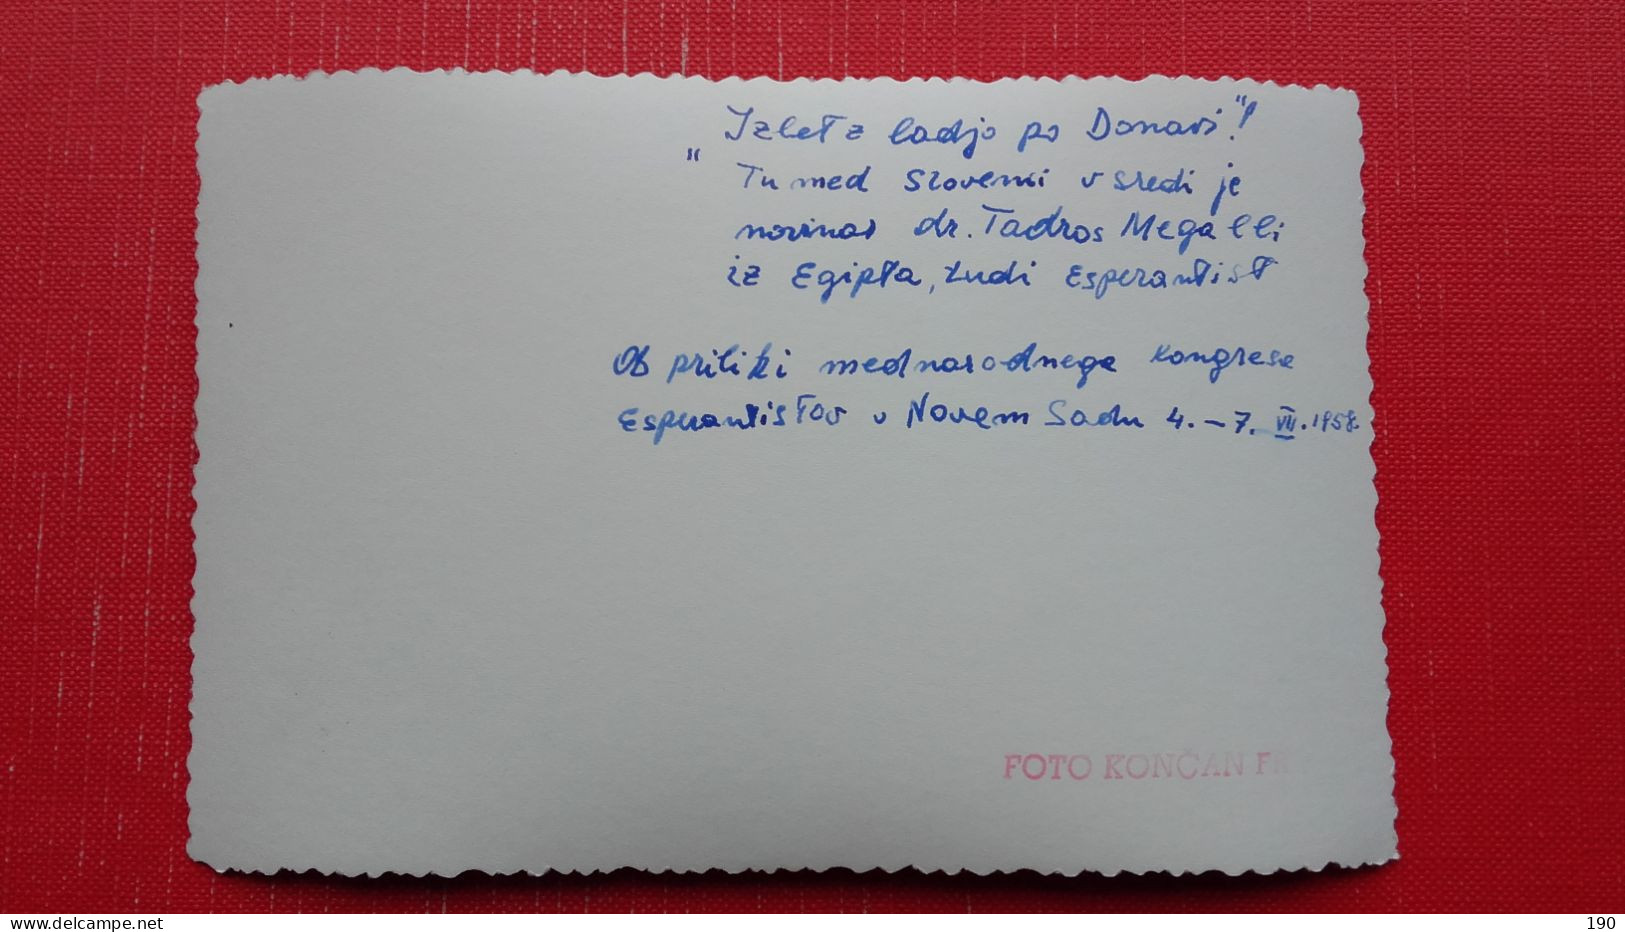 „Izlet z ladjo po Donavi!“
Tu med Slovenci v sredi je
novinar dr. Tadros Megalli
iz Egipta, tudi Esperantist
Ob priliki mednarodnega kongresa
Esperantistov v Novem Sadu 4. – 7. VII. 1958.
FOTO KONČAN FR
www.delcampe.net
190